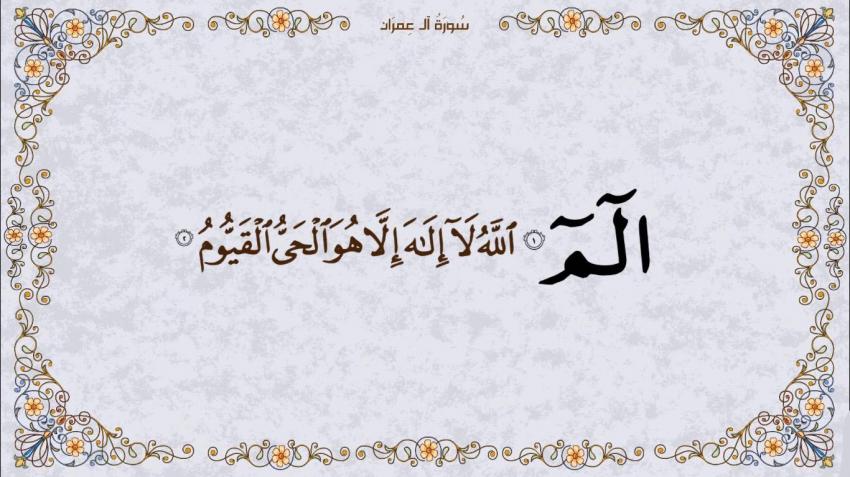 سُورَةُ آلِ عِمرَان
الٓمٓ ١ ٱللَّهُ لَآ إِلَٰهَ إِلَّا هُوَ ٱلۡحَيُّ ٱلۡقَيُّومُ ٢